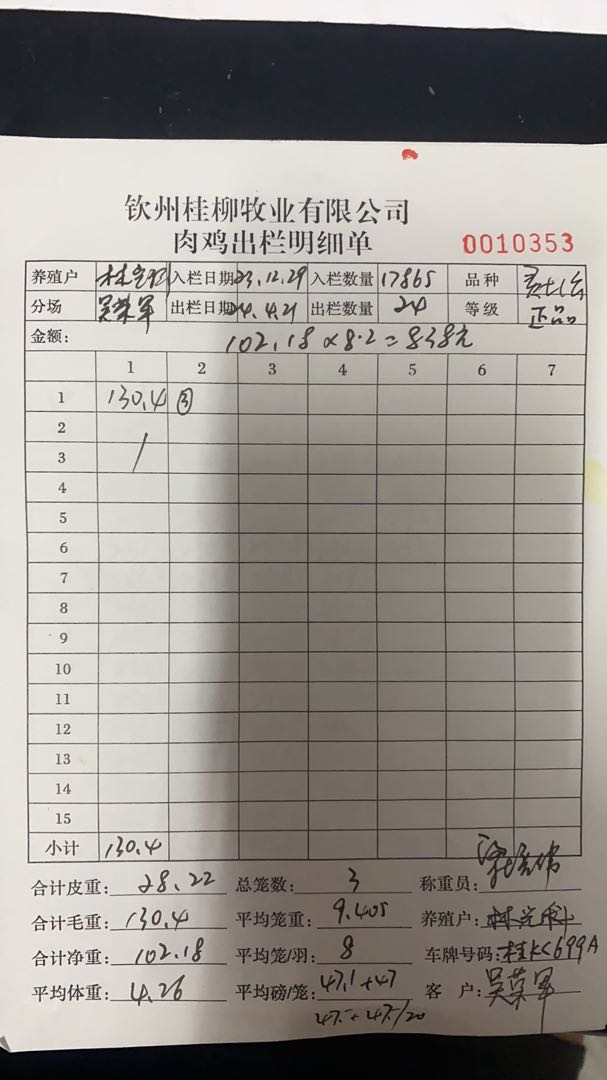 钦州桂柳牧业有限公司
肉鸡出栏明细单 0010353
养殖户 入栏日期 23.12.29 入栏数量 17865 品种
分场 吴荣军 出栏日期 24.4.21 出栏数量 24 等级 正品
金额: 102.18×8.2=838元
1 2 3 4 5 6 7
1 130.4 ③
2
3
4
5
6
7
8
9
10
11
12
13
14
15
小计 130.4
合计皮重: 28.22 总笼数: 3 称重员:
合计毛重: 130.4 平均笼重: 9.405 养殖户:
合计净重: 102.18 平均笼/羽: 8 车牌号码: 桂KC699A
平均体重: 4.26 平均磅/笼: 47.1+47 客 户: 吴荣军